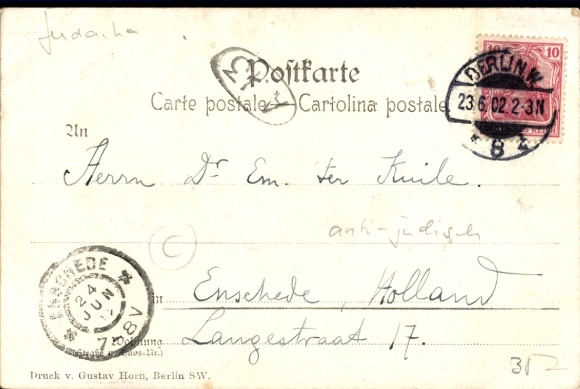 Judaika
N
Postkarte
Carte postale Cartolina postale
An
Herrn Dr Em. ter Kuile.
anti-jüdisch
C
in Enschede, Holland
Langestraat 17.
Wohnung
(Straße u. Haus-Nr.)
Druck v. Gustav Horn, Berlin SW.
10 10
BERLIN W.
23.6.02.2-3N
* 8 z
ENSCHEDE
24 JUN
7-8V
3.-